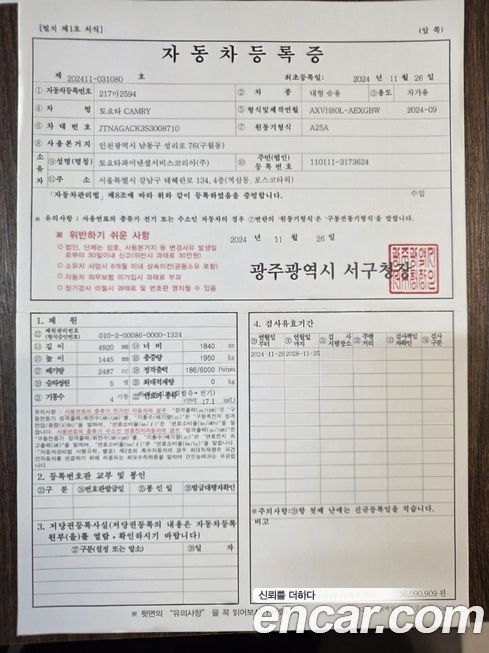 [별지 제1호 서식]
(앞 쪽)
자동차등록증
제 202411-031080 호
최초등록일: 2024 년 11 월 26 일
① 자동차등록번호 217마2594 ② 차 종 대형 승용 ③ 용도 자가용
④ 차 명 토요타 CAMRY ⑤ 형식및제작연월 AXVH80L-AEXGBW 2024-09
⑥ 차 대 번 호 JTNAGACK3S3008710 ⑦ 원동기형식 A25A
⑧ 사용본거지 인천광역시 남동구 성리로 76(구월동)
소유자 ⑨ 성명(명칭) 토요타파이낸셜서비스코리아(주) ⑩ 주민(법인)등록번호 110111-3173624
⑪ 주소 서울특별시 강남구 테헤란로 134, 4층(역삼동, 포스코타워)
「자동차관리법」 제8조에 따라 위와 같이 등록하였음을 증명합니다.
※ 유의사항 : 사용연료의 종류가 전기 또는 수소인 자동차의 경우 ⑦번란의 '원동기형식'은 '구동전동기형식'을 말합니다.
※ 위반하기 쉬운 사항
2024 년 11 월 26 일
○ 법인, 단체는 상호, 사용본거지 등 변경사유 발생일로부터 30일이내 신고(위반시 과태료 30만원)
○ 소유자 사망시 6개월 이내 상속이전(공동소유 포함)
○ 자동차 의무보험 미가입시 과태료 부과
○ 정기검사 미필시 과태료 및 번호판 영치될 수 있음
광주광역시 서구청장
1. 제 원
⑫ 제원관리번호(형식승인번호) 010-2-00086-0000-1324
⑬ 길 이 4920 mm ⑭ 너 비 1840 mm
⑮ 높 이 1445 mm ⑯ 총중량 1950 kg
⑰ 배기량 2487 cc ⑱ 정격출력 186/6000
⑲ 승차정원 5 명 ⑳ 최대적재량 0 kg
기통수 4 기통 연료의 종류 17.1
2. 등록번호판 교부 및 봉인
구 분 번호판발급일 봉인일 발급대행자확인
3. 저당권등록사실(저당권등록의 내용은 자동차등록원부(을)를 열람·확인하시기 바랍니다)
구분(설정 또는 말소) 일 자
4. 검사유효기간
연월일부터 연월일까지 검사시행장소 주행거리 검사책임자확인 검사구분
2024-11-26 2028-11-25
※주의사항: 항 첫째 난에는 신규등록일을 적습니다.
비고
신뢰를 더하다
encar.com
※ 뒷면의 "유의사항"을 꼭 읽어보시